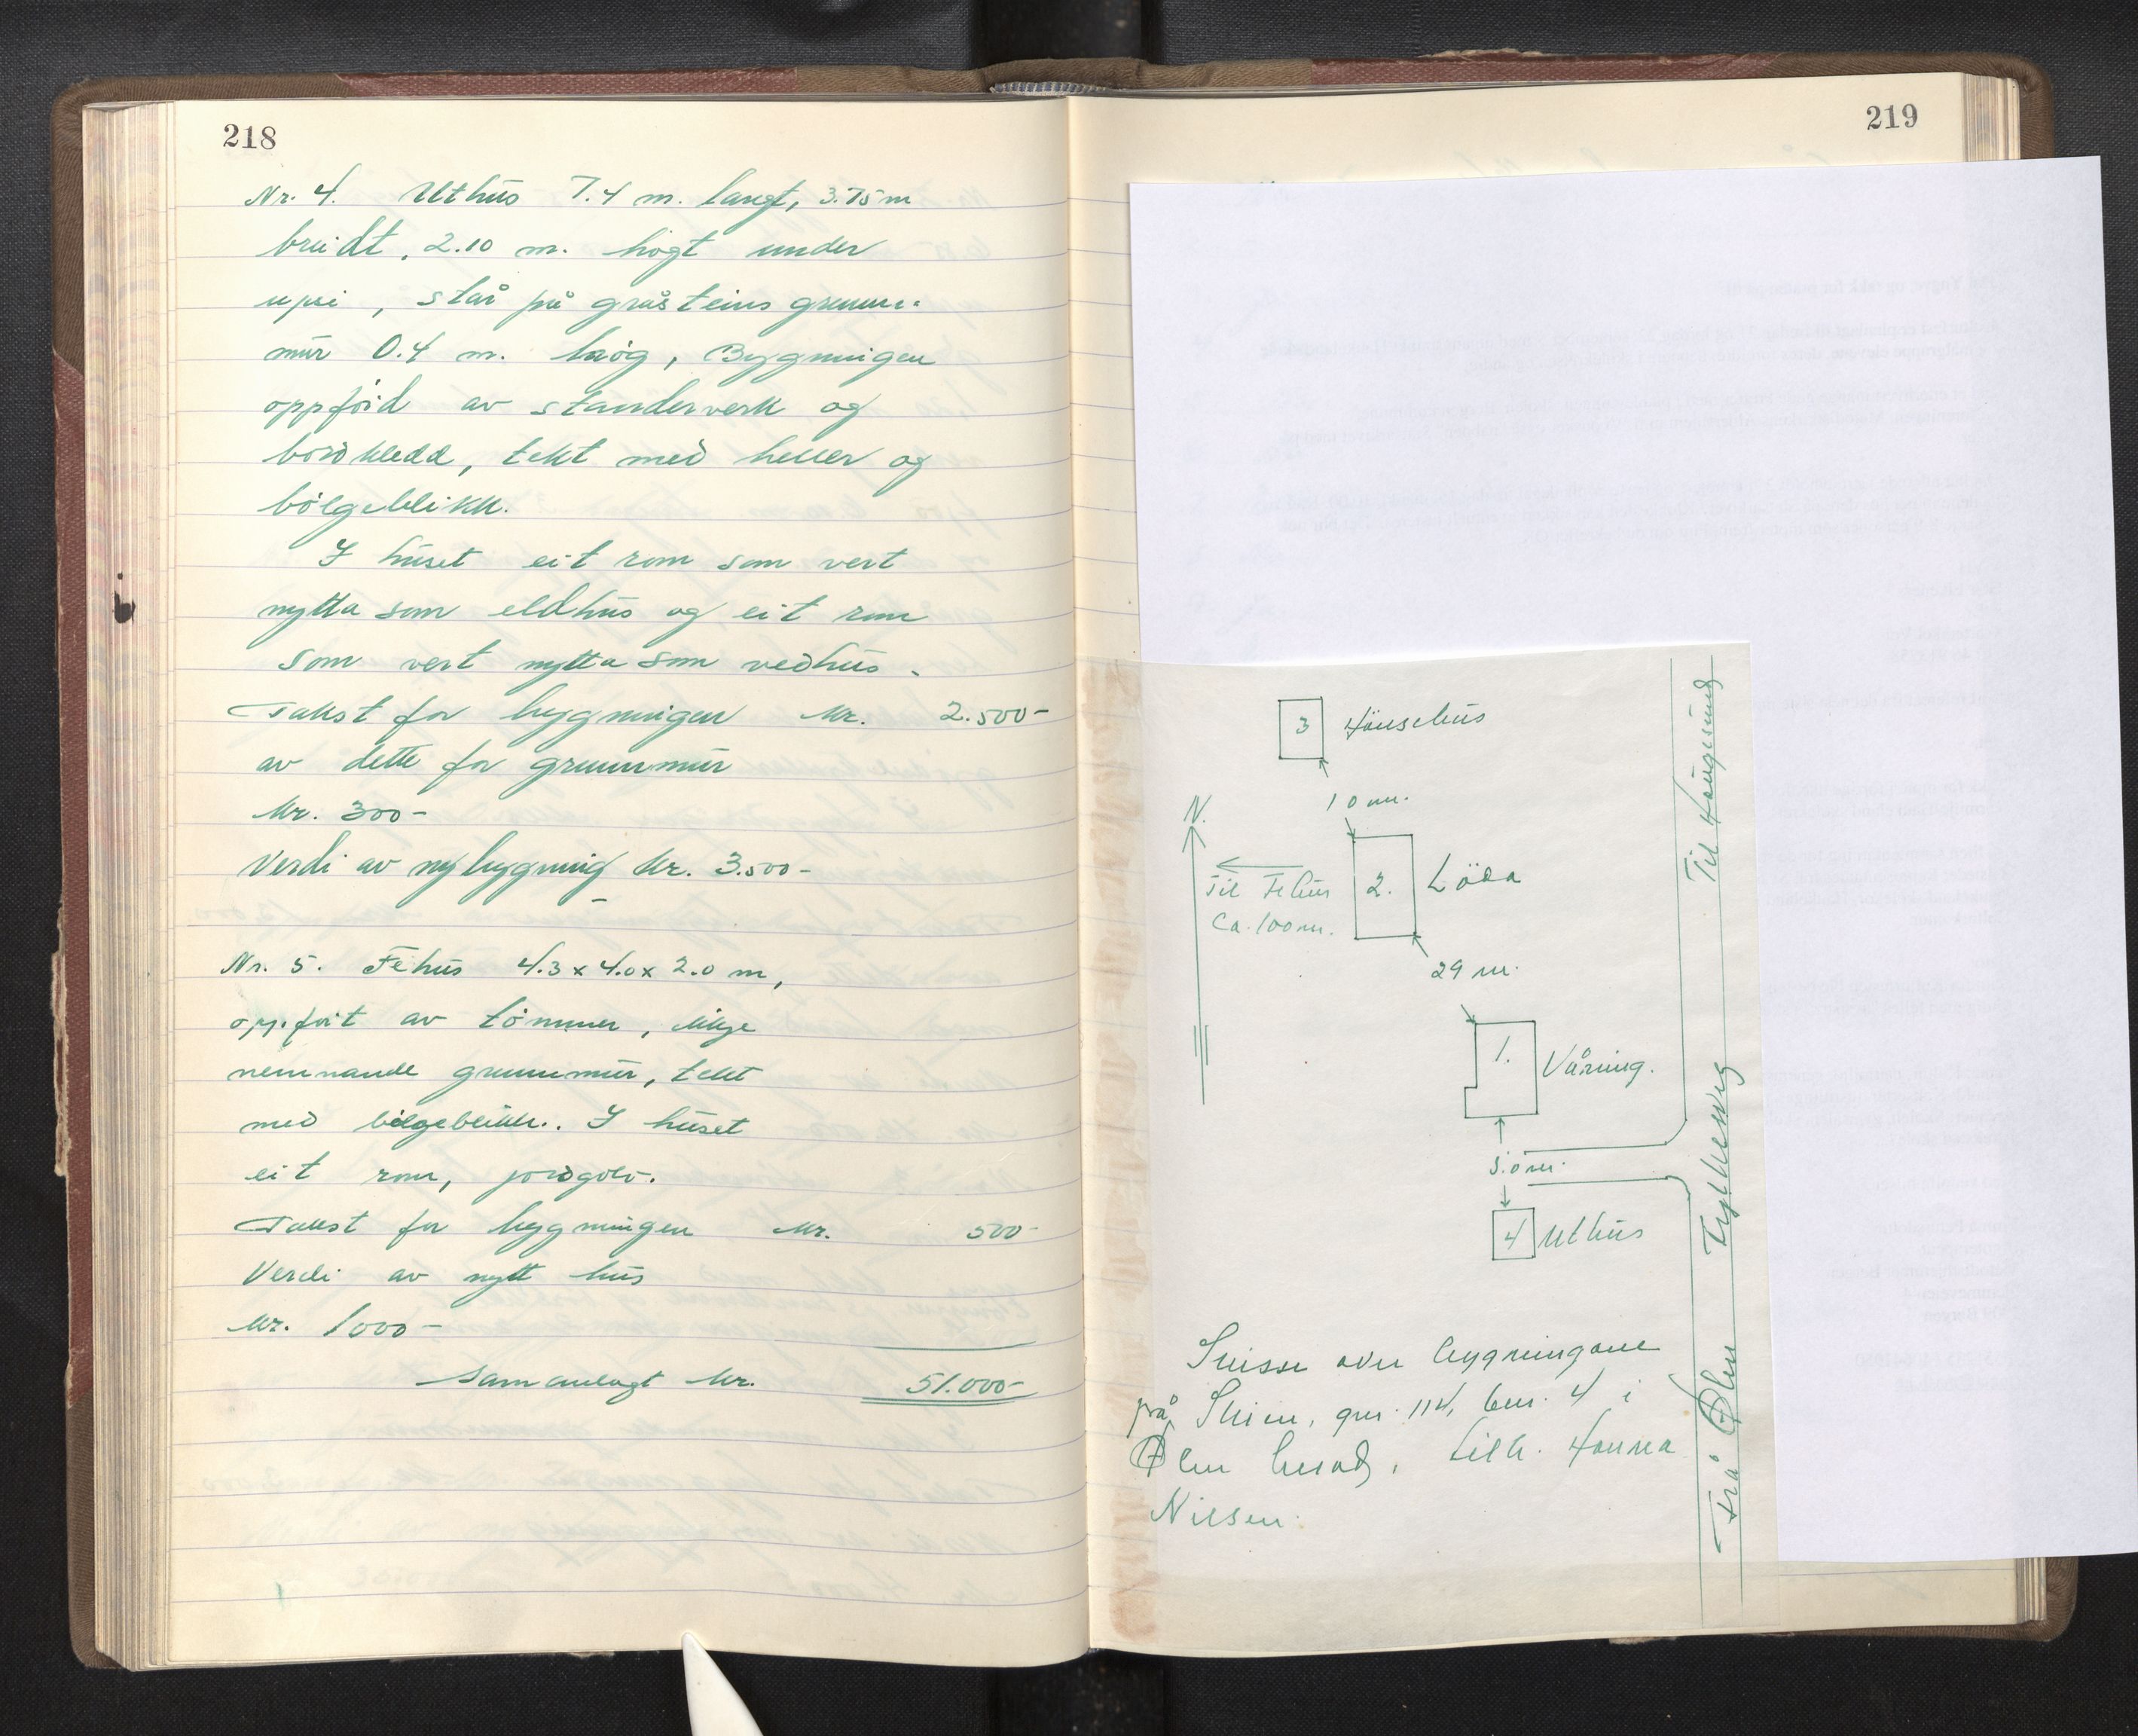 218
Nr. 4. Uthus 7.4 m. langt, 3.75 m
breidt, 2.10 m. høgt under
upsi, står på gråsteins grunn-
mur 0.4 m. høg, Bygningen
oppførd av standerverk og
bordkledd, tekt med heller og
bölgeblikk.
I huset eit rom som vert
nytta som eldhus og eit rom
som vert nytta som vedhus.
Takst for bygningen kr. 2.500-
av dette for grunnmur
kr. 300-
Verdi av ny bygning kr. 3.500-
Nr. 5. Fehus 4.3 x 4.0 x 2.0 m,
oppført av tömmer, ikkje
nemnande grunnmur, tekt
med bölgeblikk. I huset
eit rom, jordgolv.
Takst for bygningen kr. 500-
Verdi av nytt hus
kr. 1000-
Samanlagt kr. 51.000-
219
3 Hönsehus
10 m.
N.
Til Fehus
Ca. 100 m.
2. Löda
29 m.
1. Våning.
5.0 m.
4 Uthus
Til Haugesund
Fylkesveg
Frå Ølen
Skisse over bygningane
på Skien, gnr. 114, bnr. 4 i
Ølen herad, tilh. Hanna
Nilsen.